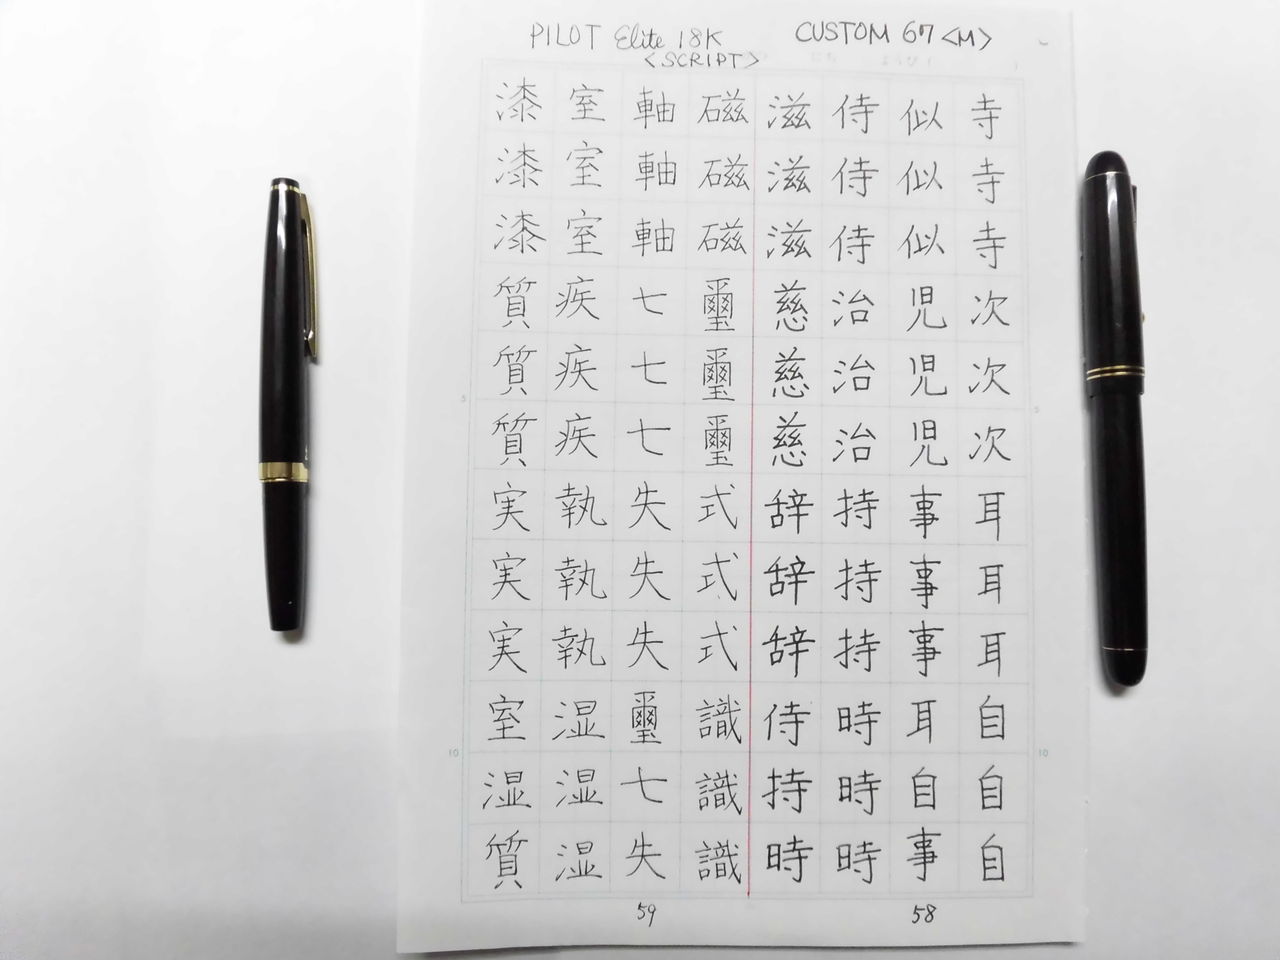 PILOT Elite 18K
<SCRIPT>
CUSTOM 67 <M>
寺寺寺次次次耳耳耳自自自
似似似児児児事事事耳自事
侍侍侍治治治持持持時時時
滋滋滋慈慈慈辞辞辞侍持時
磁磁磁璽璽璽式式式識識識
軸軸軸七七七失失失璽七失
室室室疾疾疾執執執湿湿湿
漆漆漆質質質実実実室湿質
58
59
5
10
5
10